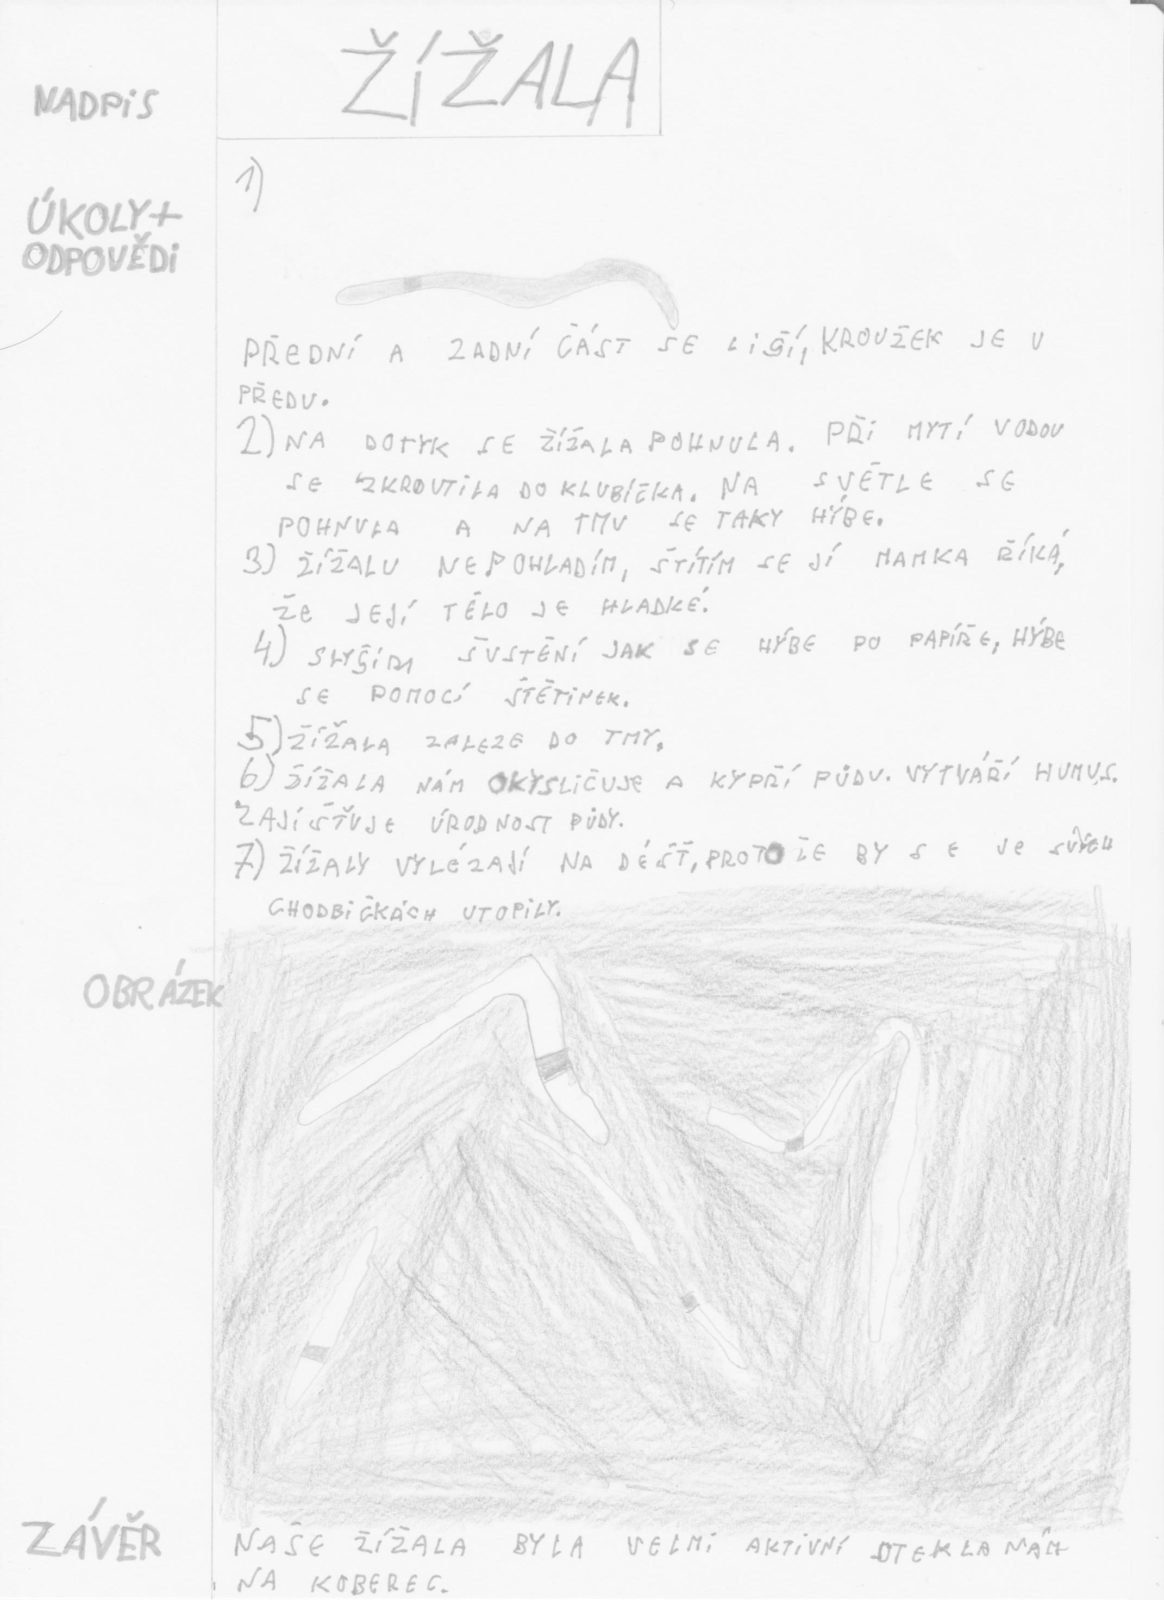 NADPIS
ŽÍŽALA
ÚKOLY+
ODPOVĚDI
1)
PŘEDNÍ A ZADNÍ ČÁST SE LIŠÍ, KROUŽEK JE V
PŘEDU.
2) NA DOTYK SE ŽÍŽALA POHNULA. PŘI MYTÍ VODOU
SE ZKROUTILA DO KLUBÍČKA. NA SVĚTLE SE
POHNULA A NA TMU SE TAKY HÝBE.
3) ŽÍŽALU NEPOHLADÍM, ŠTÍTÍM SE JÍ MAMKA ŘÍKÁ,
ŽE JEJÍ TĚLO JE HLADKÉ.
4) SLYŠÍM ŠUSTĚNÍ JAK SE HÝBE PO PAPÍŘE, HÝBE
SE POMOCÍ ŠTĚTINEK.
5) ŽÍŽALA ZALEZE DO TMY.
6) ŽÍŽALA NÁM OKYSLIČUJE A KYPŘÍ PŮDU. VYTVÁŘÍ HUMUS.
ZAJÍŠŤUJE ÚRODNOST PŮDY.
7) ŽÍŽALY VYLÉZAJÍ NA DÉŠŤ, PROTOŽE BY SE VE SVÝCH
CHODBIČKÁCH UTOPILY.
OBRÁZEK
ZÁVĚR
NAŠE ŽÍŽALA BYLA VELMI AKTIVNÍ UTEKLA NÁM
NA KOBEREC.